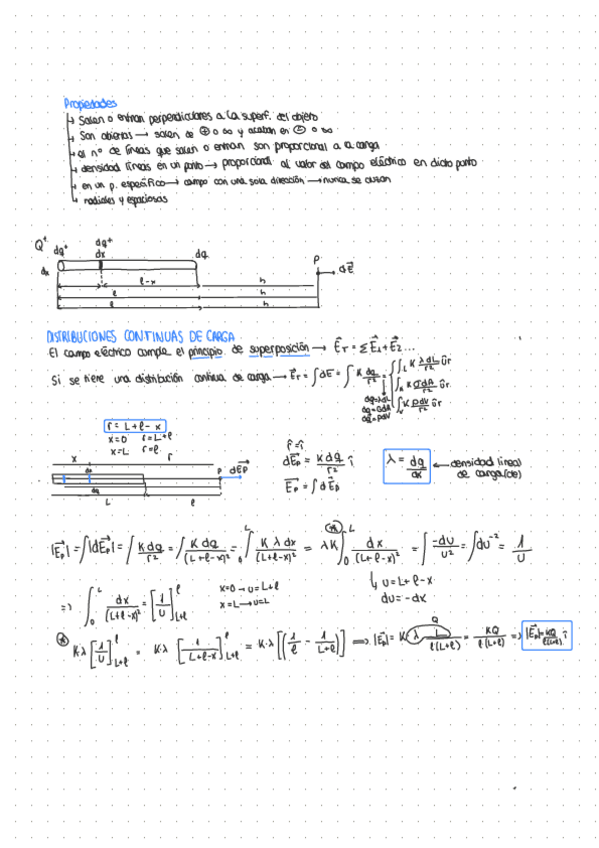 Propiedades
↳ Salen o entran perpendiculares a la superf. del objeto
↳ Son abiertas → salen de ⊕ o ∞ y acaban en ⊖ o ∞
↳ el nº de líneas que salen o entran son proporcional a la carga
↳ densidad líneas en un punto → proporcional al valor del campo eléctrico en dicho punto
↳ en un p. específico → campo con una sola dirección → nunca se cruzan
↳ radiales y espaciosas
Q⁺ dq⁺ dq⁺ dq P
dx dx dE⃗
ℓ-x h
ℓ h
ℓ h
DISTRIBUCIONES CONTINUAS DE CARGA
El campo eléctrico cumple el principio de superposición → E⃗т = ΣE⃗1+E⃗2...
Si se tiene una distribución continua de carga → E⃗т = ∫dE⃗ = ∫ K dq/r² = ∫L K λdL/r² ûr
∫A K σdA/r² ûr
∫V K ρdV/r² ûr
dq=λdL
dq=σdA
dq=ρdV
r = L+ℓ-x
x=0 r=L+ℓ
x=L r=ℓ
x dx r P dE⃗P
dq
L ℓ
r̂=î
dE⃗p = K dq/r² î
E⃗p = ∫dE⃗p
λ = dq/dx ← densidad lineal de carga(cte)
|E⃗p| = ∫|dE⃗p| = ∫ K dq/r² = ∫ K dq/(L+ℓ-x)² = ∫₀ᴸ K λ dx/(L+ℓ-x)² = λK ∫₀ᴸ dx/(L+ℓ-x)² = ∫ -du/u² = ∫du⁻² = 1/u
↳ u=L+ℓ-x
du=-dx
=> ∫₀ᴸ dx/(L+ℓ-x)² = [1/u] ℓ L+ℓ
x=0 → u=L+ℓ
x=L → u=L
⊛ K·λ [1/u] ℓ L+ℓ = K·λ [1/(L+ℓ-x)] ℓ L+ℓ = K·λ [(1/ℓ - 1/(L+ℓ))] ⟹ |E⃗p| = K λ L/ℓ(L+ℓ) = KQ/ℓ(L+ℓ) => |E⃗p| = KQ/ℓ(L+ℓ) î
Q